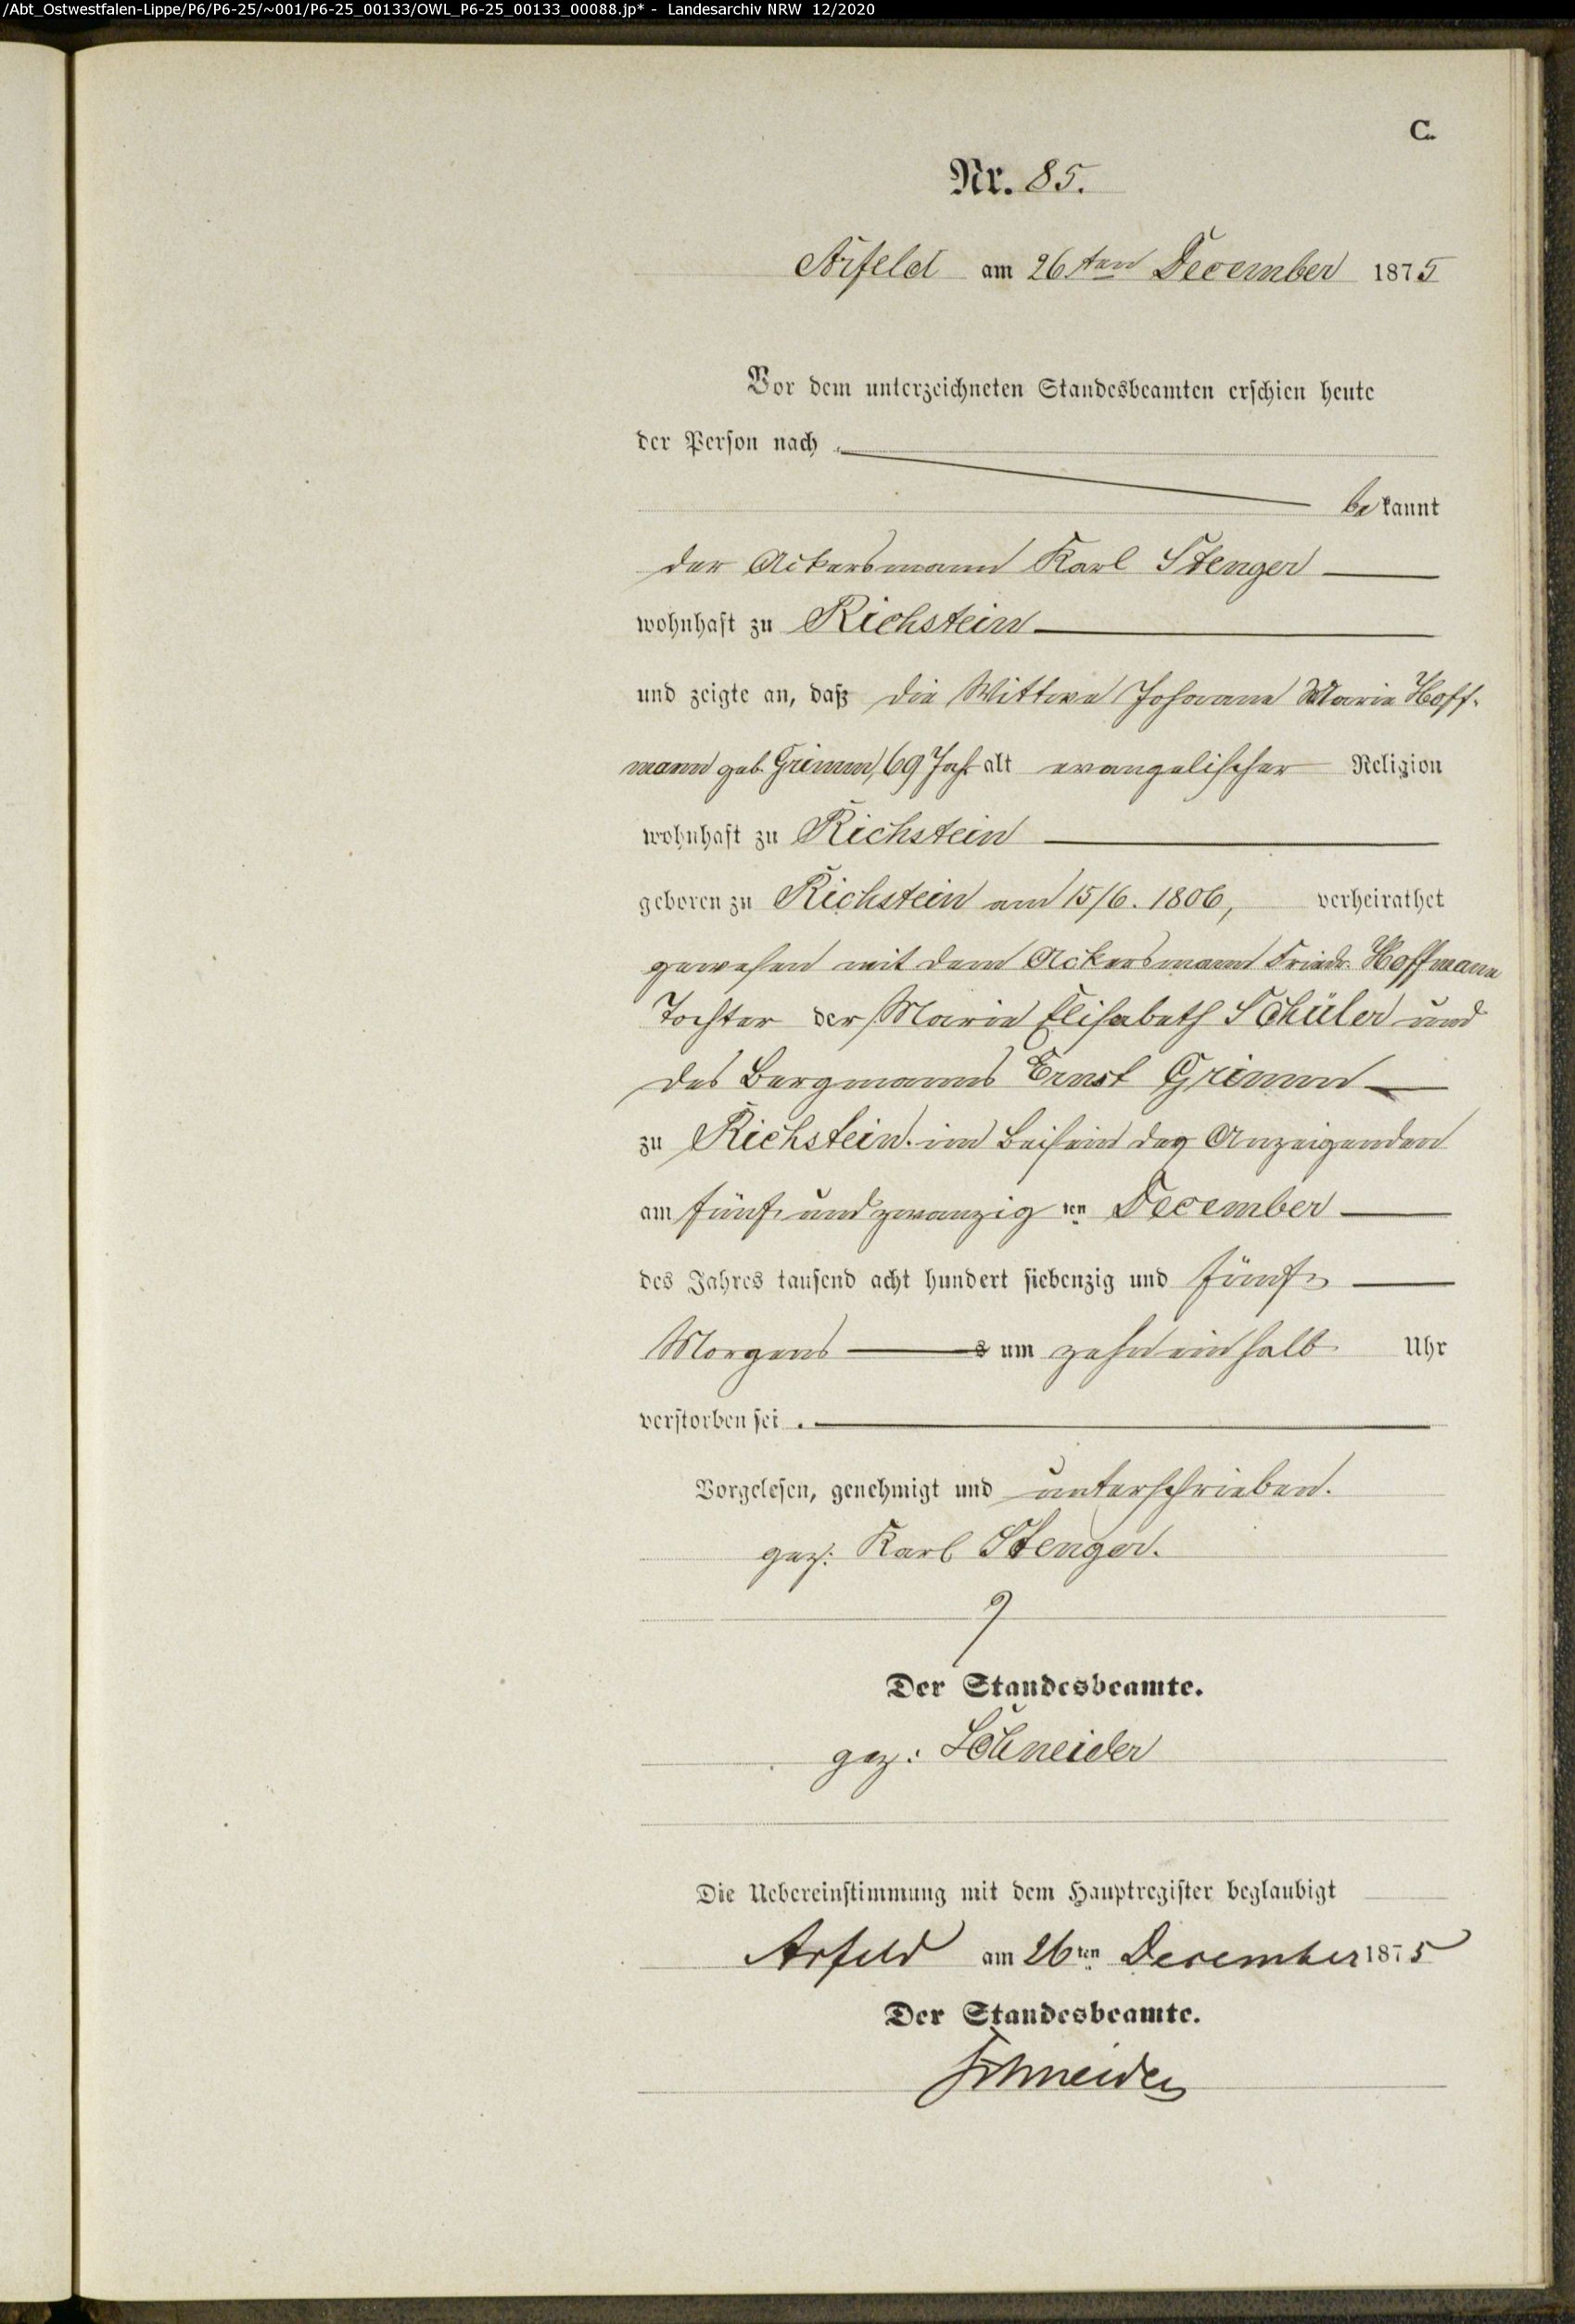 /Abt_Ostwestfalen-Lippe/P6/P6-25/~001/P6-25_00133/OWL_P6-25_00133_00088.jp* - Landesarchiv NRW 12/2020
C.
Nr. 85.
Arfeld am 26ten December 1875
Vor dem unterzeichneten Standesbeamten erschien heute
der Person nach
bekannt
der Ackersmann Karl Stenger
wohnhaft zu Richstein
und zeigte an, daß die Wittwe Johanne Marie Hoff-
mann geb. Grimm, 69 Jah. alt evangelischer Religion
wohnhaft zu Richstein
geboren zu Richstein am 15/6. 1806, verheirathet
gewesen mit dem Ackersmann Friedr. Hoffmann
Tochter der Marie Elisabeth Schüler und
des Bergmanns Ernst Grimm
zu Richstein. im Beisein des Anzeigenden
am fünf und zwanzig ten December
des Jahres tausend acht hundert siebenzig und fünf
Morgens s um zehn ein halb Uhr
verstorben sei .
Vorgelesen, genehmigt und unterschrieben.
gez: Karl Stenger.
Der Standesbeamte.
gez: Schneider
Die Uebereinstimmung mit dem Hauptregister beglaubigt
Arfeld am 26ten December 1875
Der Standesbeamte.
Schneider